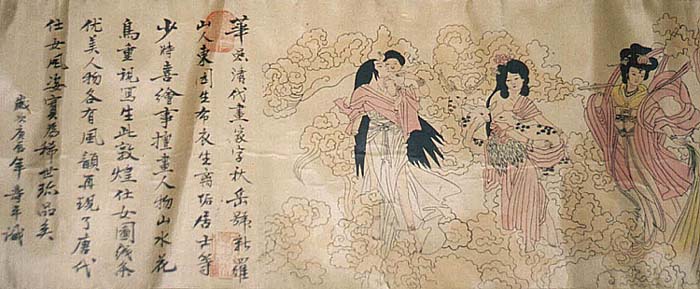 華嵒清代畫家字秋岳號新羅
山人東园生布衣生離垢居士等
少時喜繪事擅畫人物山水花
鳥重視寫生此敦煌仕女圖线条
优美人物各有風韻再現了唐代
仕女風姿實為稀世珍品矣
歲次庚辰年壽平識